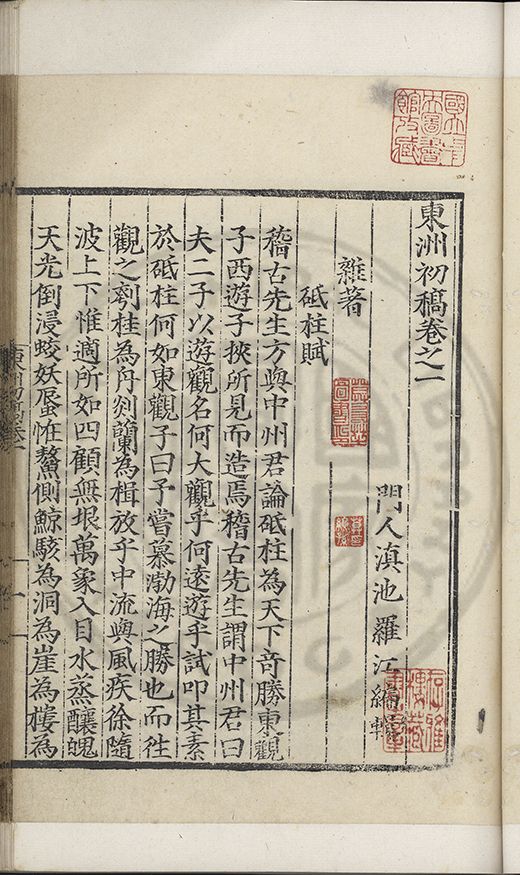 東洲初稿卷之一
門人滇池羅江編輯
雜著
砥柱賦
稽古先生方與中州君論砥柱為天下竒勝東觀
子西遊子挾所見而造焉稽古先生謂中州君曰
夫二子以遊觀名何大觀乎何遠遊乎試叩其素
於砥柱何如東觀子曰予嘗慕渤海之勝也而徃
觀之刳桂為舟剡蘭為楫放乎中流與風疾徐隨
波上下惟適所如四顧無垠萬象入目水蒸釀魄
天光倒浸蛟妖蜃恠鰲側鯨駭為洞為崖為樓為